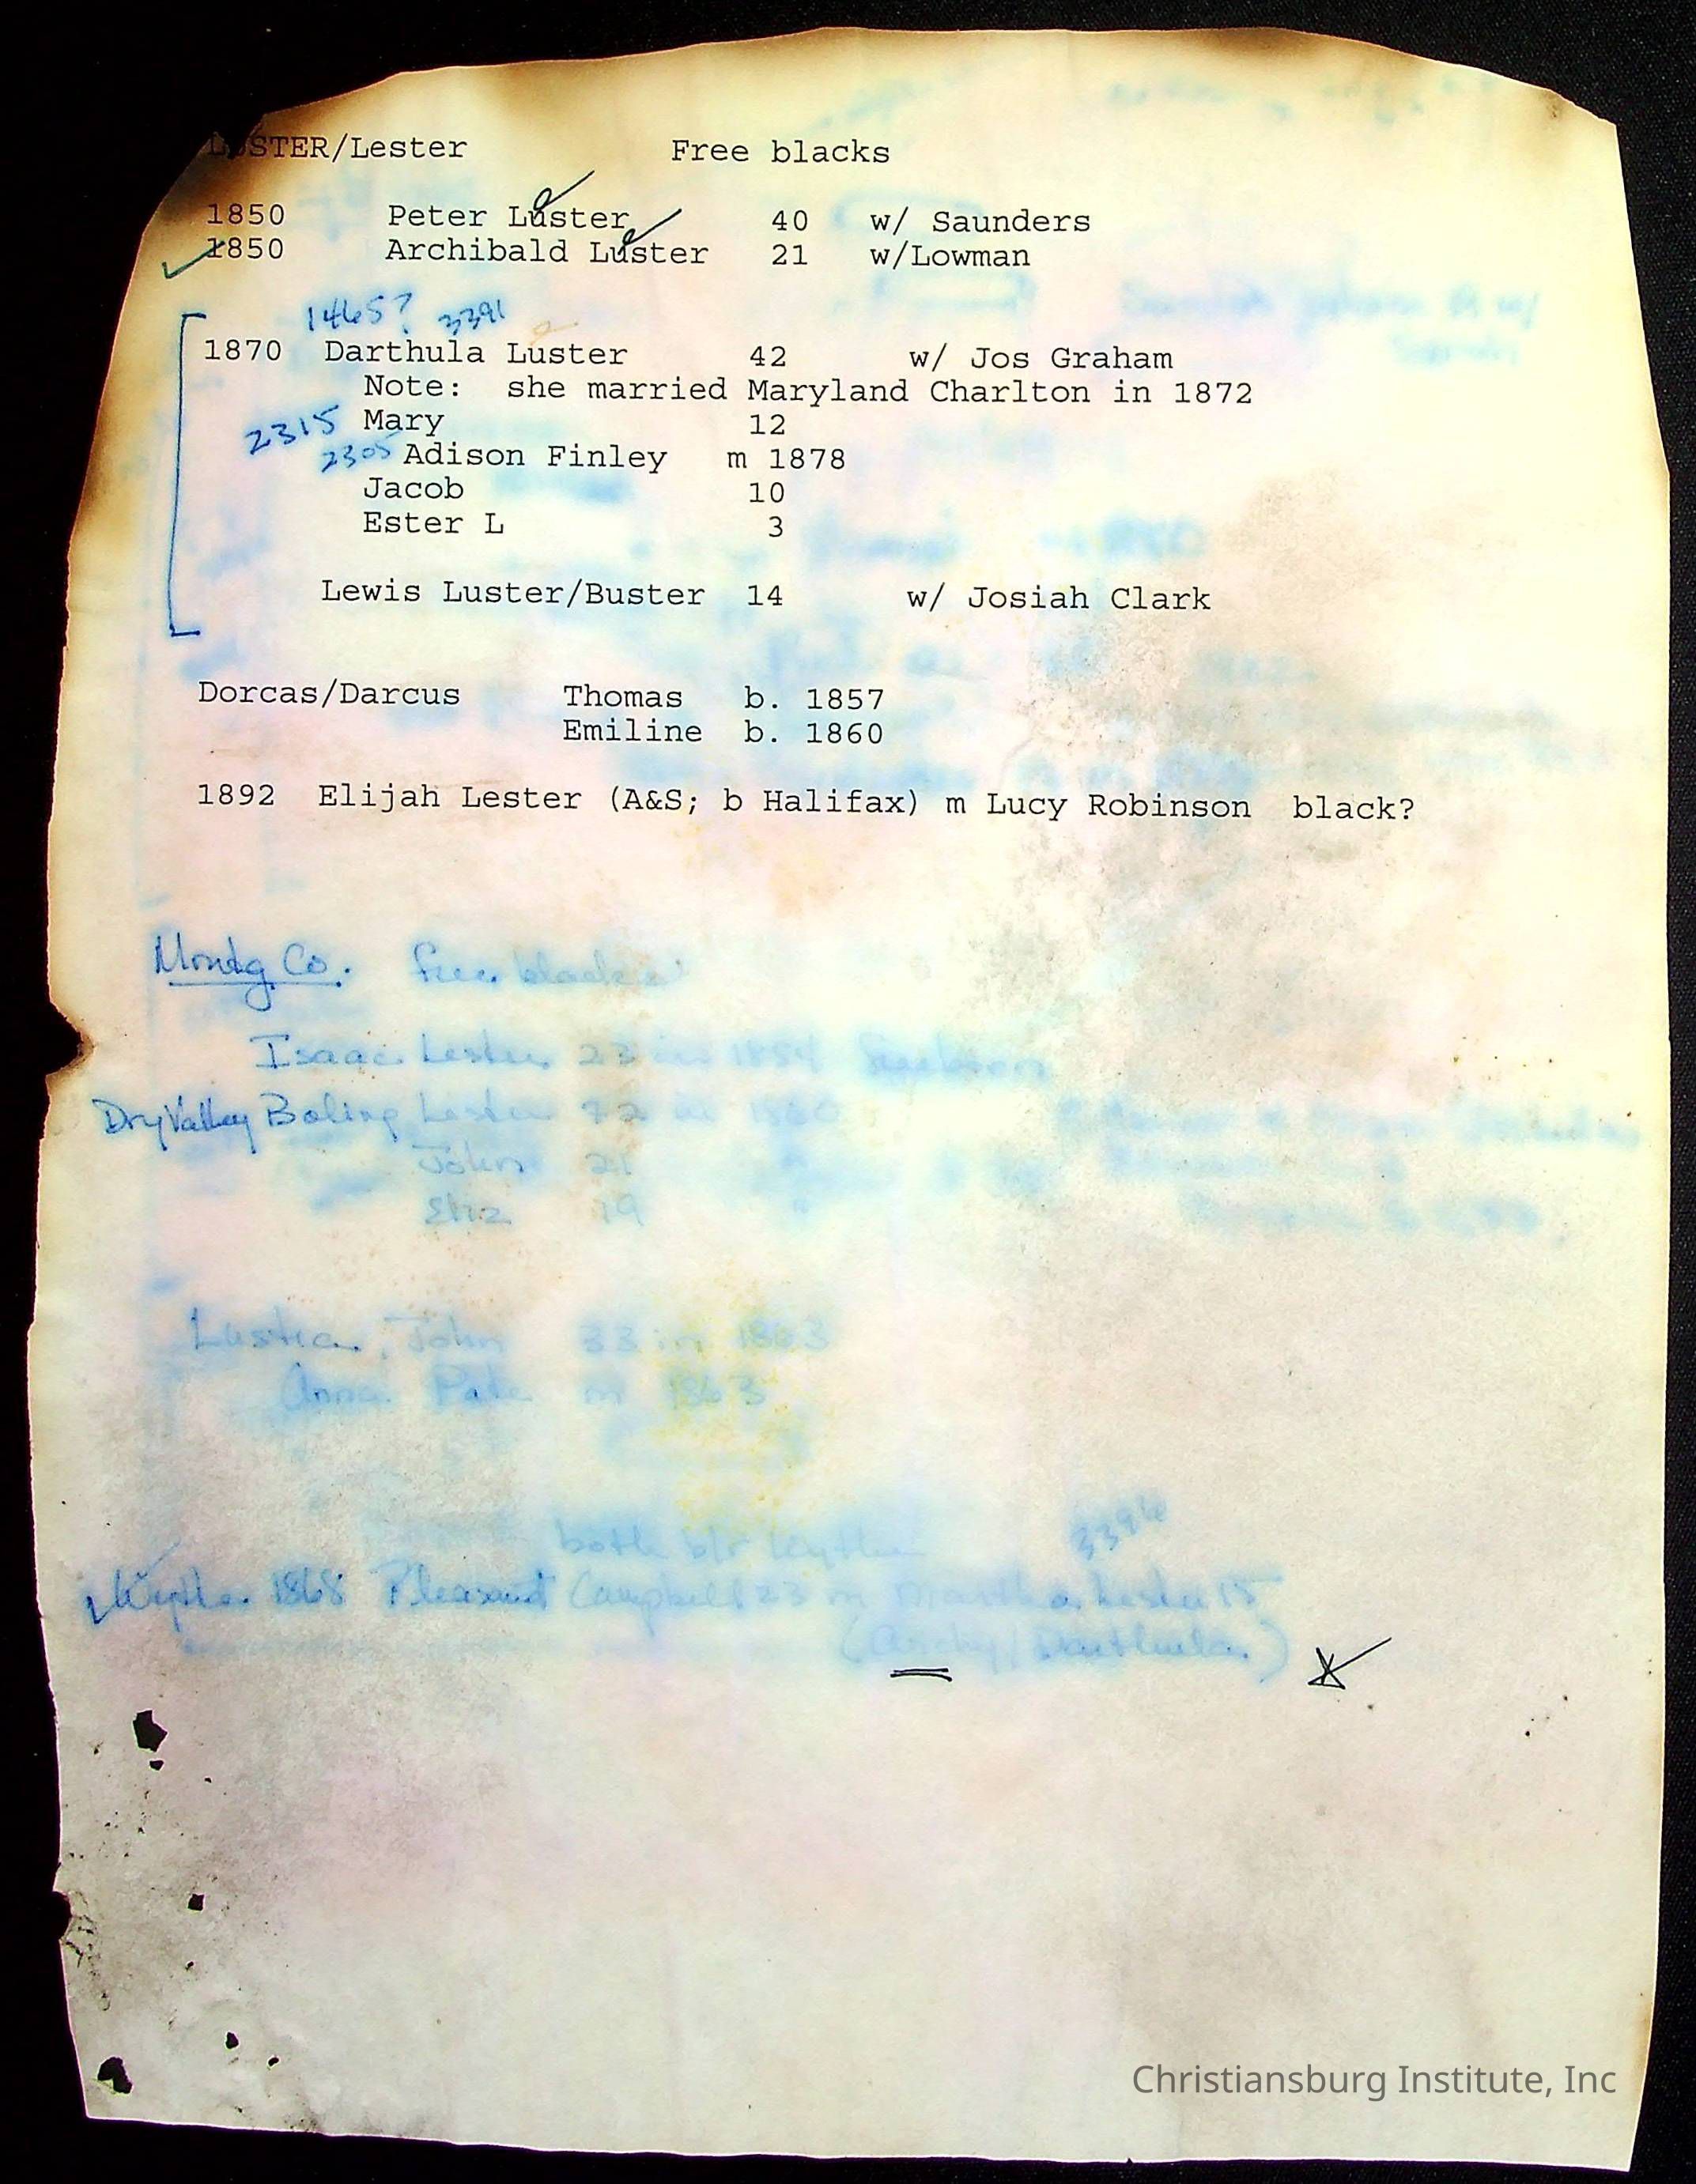 LUSTER/Lester Free blacks
1850 Peter Luster 40 w/ Saunders
1850 Archibald Luster 21 w/Lowman
1465? 3391
1870 Darthula Luster 42 w/ Jos Graham
Note: she married Maryland Charlton in 1872
2315 Mary 12
2305 Adison Finley m 1878
Jacob 10
Ester L 3
Lewis Luster/Buster 14 w/ Josiah Clark
Dorcas/Darcus Thomas b. 1857
Emiline b. 1860
1892 Elijah Lester (A&S; b Halifax) m Lucy Robinson black?
Montg Co. free blacks
Isaac Lester 23 in 1854
Dry Valley Boling Lester 72 in 1860
John 21 "
Eliz 19 "
John 33 in 1863
Anna Pate m 1863
both b/r Wythe 3394
Wythe 1868 Pleasant Campbell 23 m Martha Lester 15
(Archy/Darthula)
Christiansburg Institute, Inc